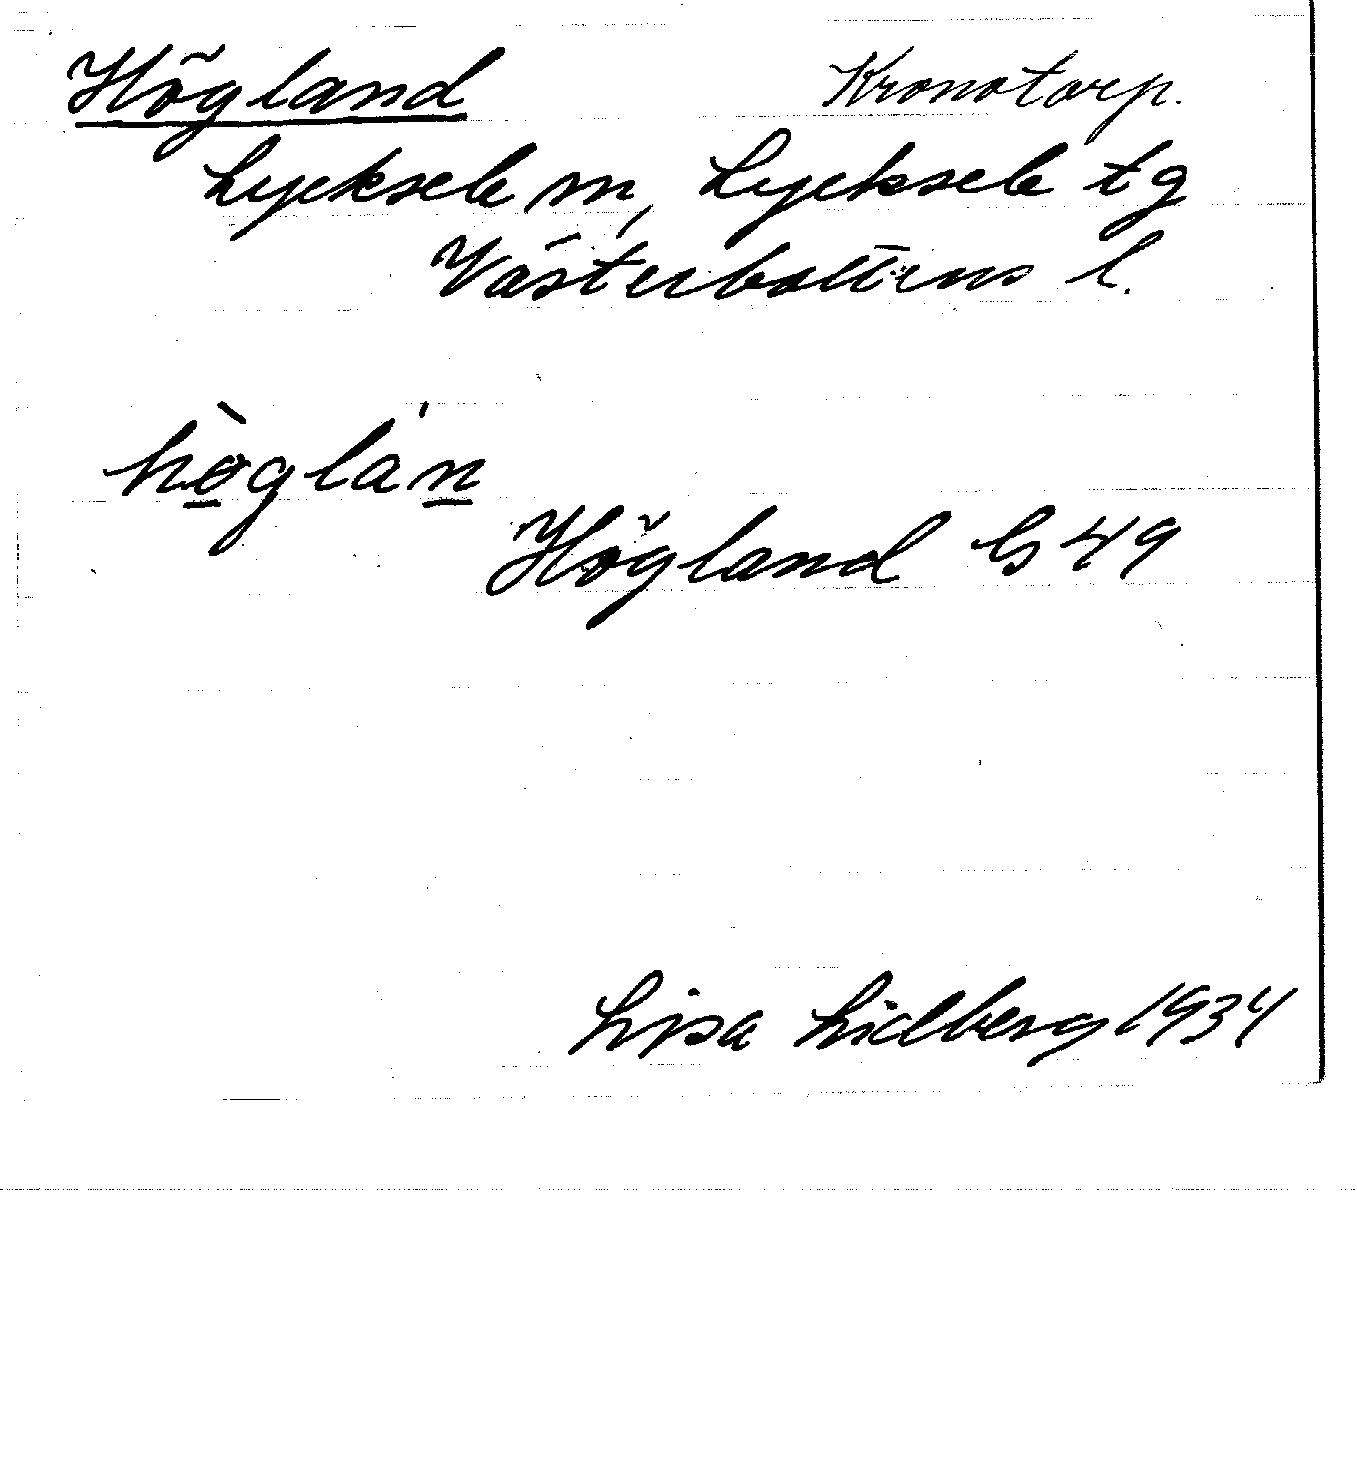 Högland Kronotorp.
Lycksele m, Lycksele tg
Västerbottens l.
hòglán
Högland G 49
Lisa Lidberg 1934